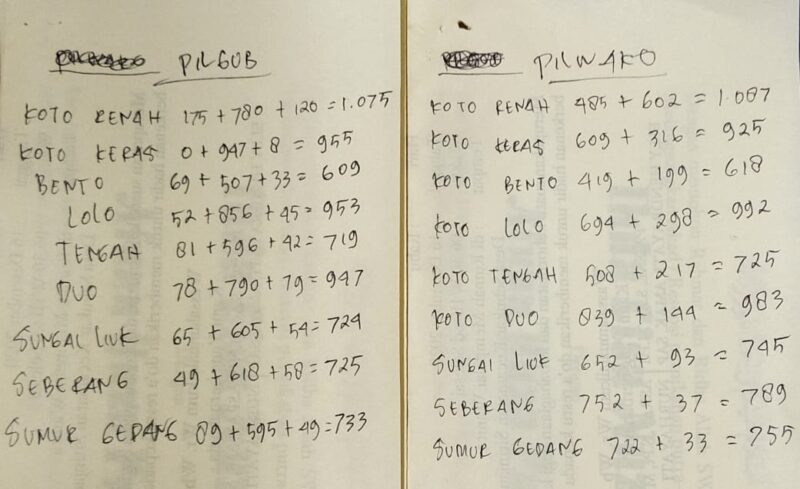 PILGUB
KOTO RENAH 175 + 780 + 120 = 1.075
KOTO KERAS 0 + 947 + 8 = 955
BENTO 69 + 507 + 33 = 609
LOLO 52 + 856 + 45 = 953
TENGAH 81 + 596 + 42 = 719
DUO 78 + 790 + 79 = 947
SUNGAI LIUK 65 + 605 + 54 = 724
SEBERANG 49 + 618 + 58 = 725
SUMUR GEDANG 89 + 595 + 49 = 733
PILWAKO
KOTO RENAH 485 + 602 = 1.087
KOTO KERAS 609 + 316 = 925
KOTO BENTO 419 + 199 = 618
KOTO LOLO 694 + 298 = 992
KOTO TENGAH 508 + 217 = 725
KOTO DUO 839 + 144 = 983
SUNGAI LIUK 652 + 93 = 745
SEBERANG 752 + 37 = 789
SUMUR GEDANG 722 + 33 = 755